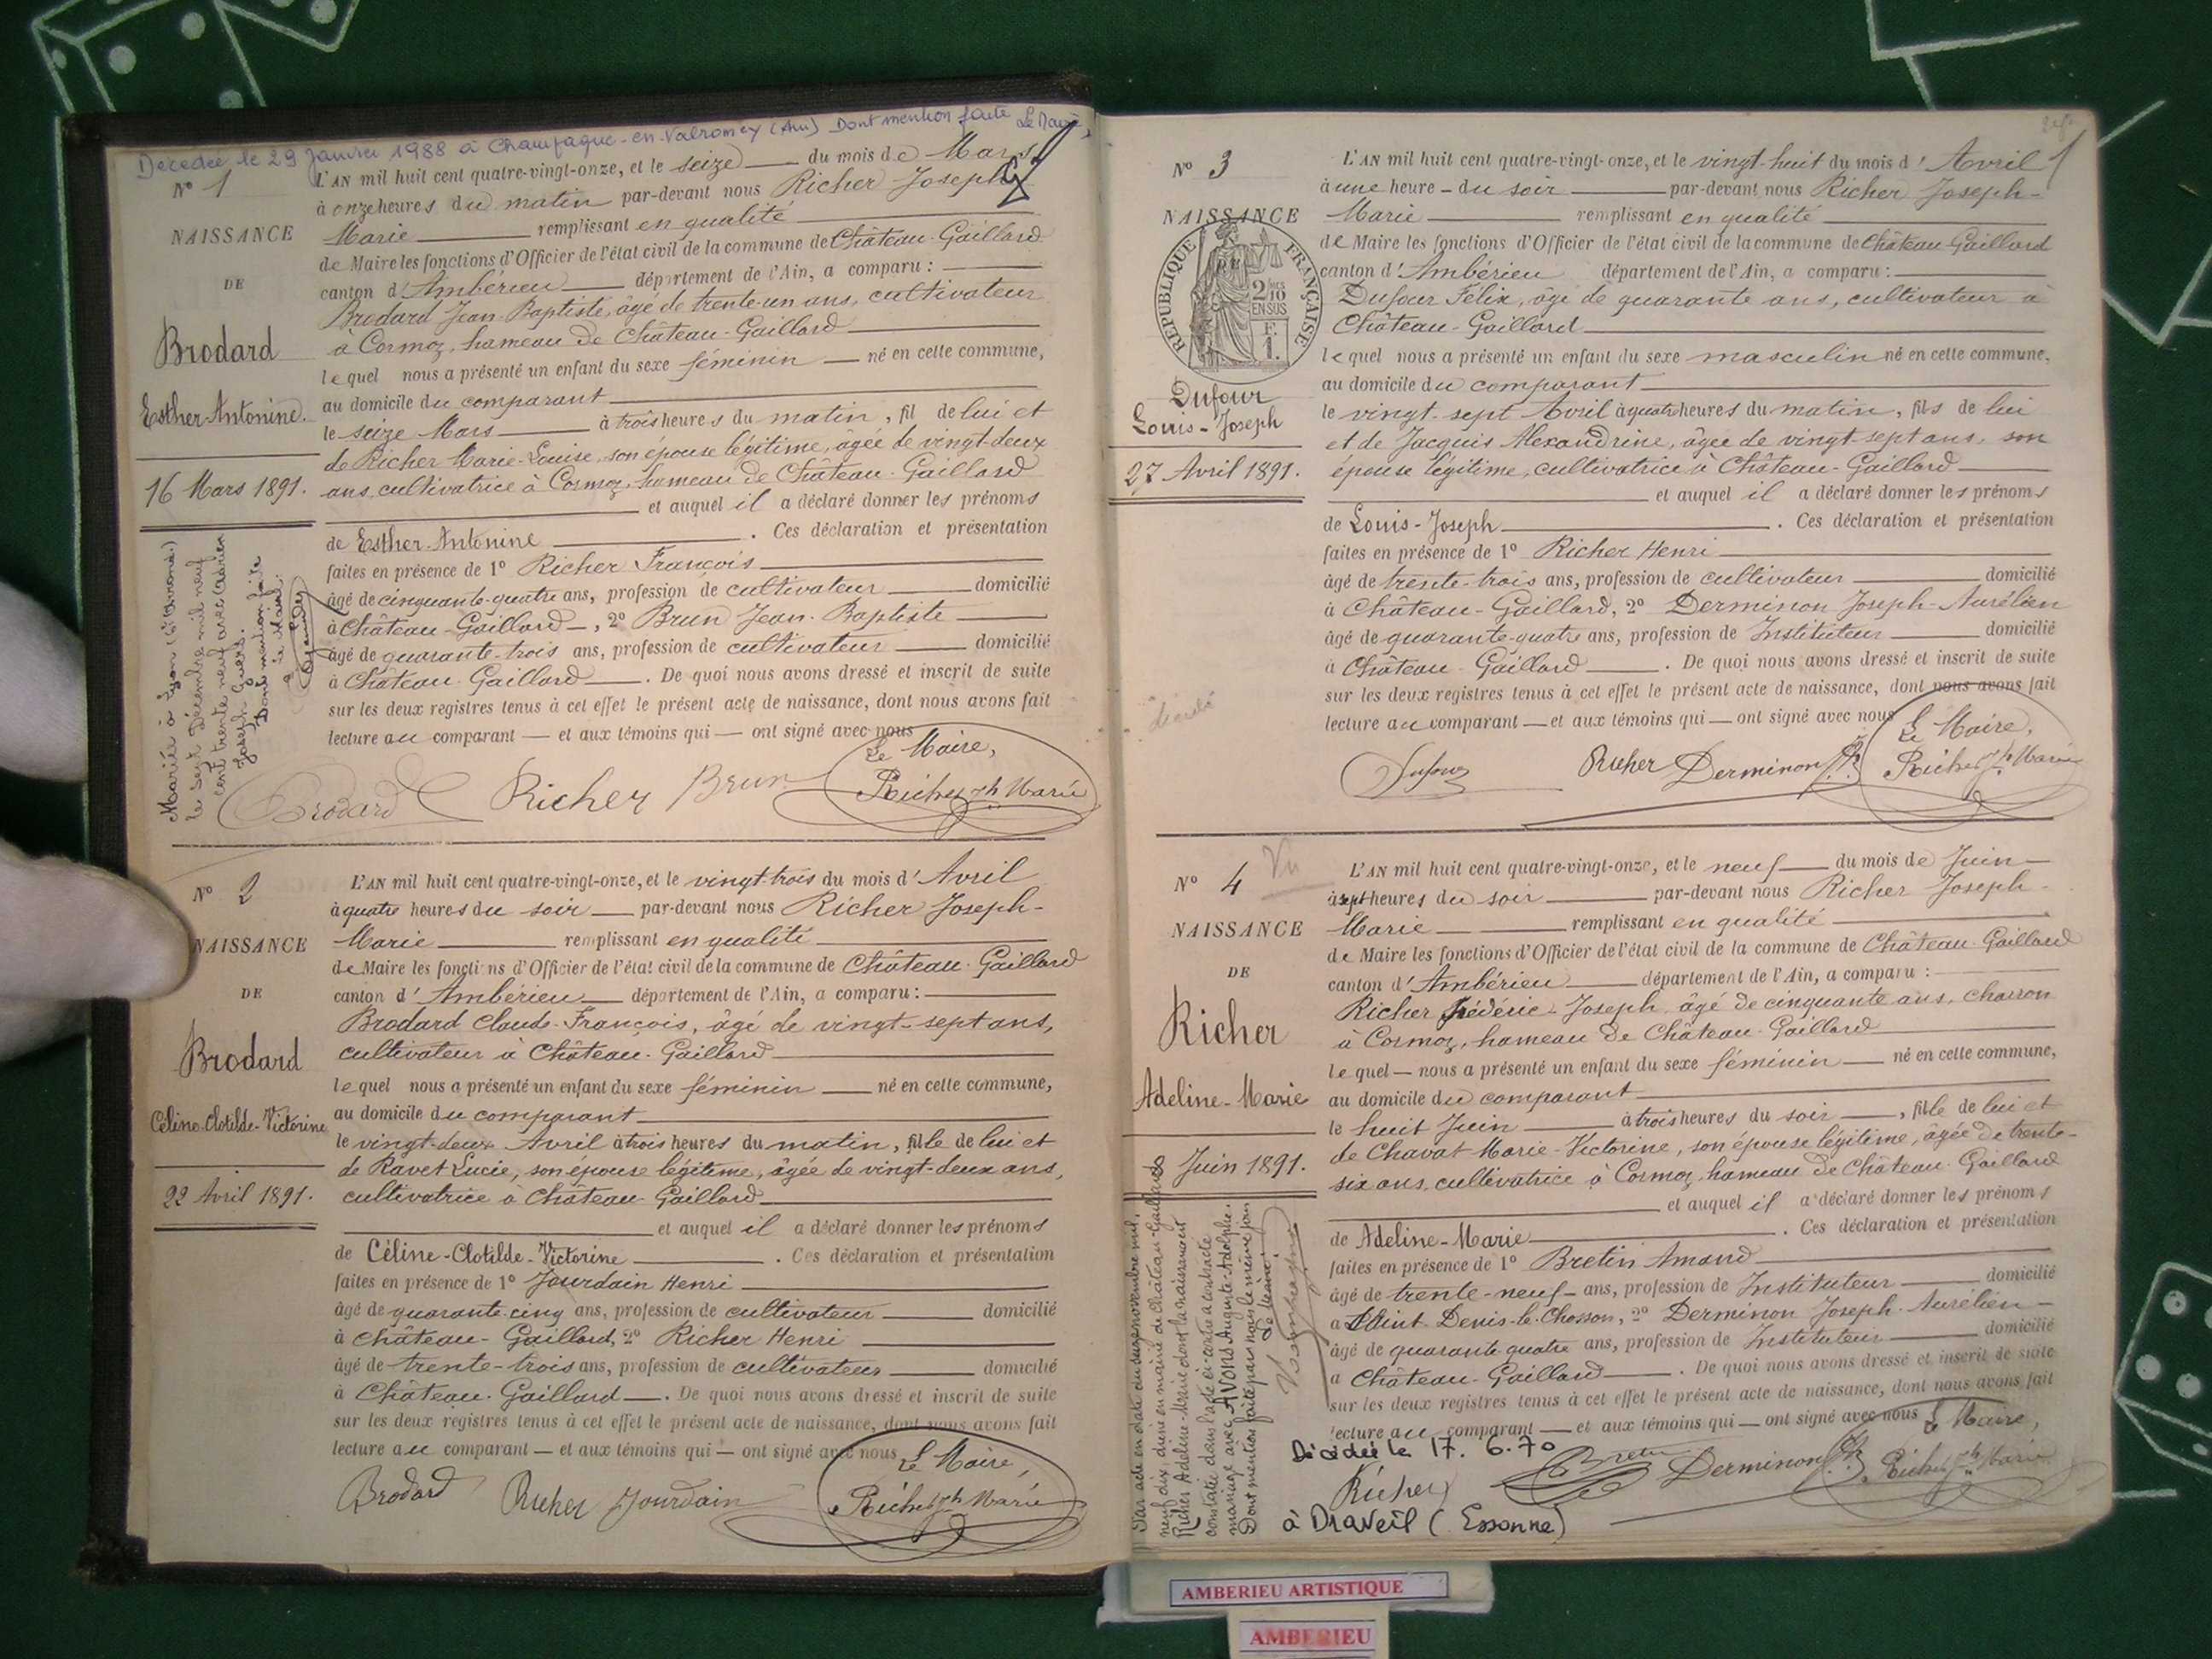 Décédée le 29 Janvier 1988 à Champagne-en-Valromey (Ain) Dont mention faite Le Maire,
N° 1
NAISSANCE
DE
Brodard
Esther-Antonine.
16 Mars 1891.
Mariée à Lyon
le sept Décembre mil neuf
cent trente neuf avec Adrien
Joseph
Dont mention faite
Le Maire:
L'AN mil huit cent quatre-vingt-onze, et le seize du mois de Mars
à onze heures du matin par-devant nous Richer Joseph
Marie remplissant en qualité
de Maire les fonctions d'Officier de l'état civil de la commune de Château-Gaillard
canton d'Ambérieu département de l'Ain, a comparu :
Brodard Jean-Baptiste, âgé de trente-un ans, cultivateur
à Cormoz, hameau de Château-Gaillard
lequel nous a présenté un enfant du sexe féminin né en cette commune,
au domicile du comparant
le seize Mars à trois heures du matin, fil de lui et
de Richer Marie-Louise, son épouse légitime, âgée de vingt-deux
ans, cultivatrice à Cormoz, hameau de Château-Gaillard
et auquel il a déclaré donner les prénoms
de Esther-Antonine . Ces déclaration et présentation
faites en présence de 1° Richer François
âgé de cinquante-quatre ans, profession de cultivateur domicilié
à Château-Gaillard, 2° Brun Jean-Baptiste
âgé de quarante-trois ans, profession de cultivateur domicilié
à Château-Gaillard . De quoi nous avons dressé et inscrit de suite
sur les deux registres tenus à cet effet le présent acte de naissance, dont nous avons fait
lecture au comparant et aux témoins qui ont signé avec nous
Le Maire,
Brodard Richer Brun Richer Jh Marie
N° 2
NAISSANCE
DE
Brodard
Céline-Clotilde-Victorine
22 Avril 1891.
L'AN mil huit cent quatre-vingt-onze, et le vingt-trois du mois d'Avril
à quatre heures du soir par-devant nous Richer Joseph-
Marie remplissant en qualité
de Maire les fonctions d'Officier de l'état civil de la commune de Château-Gaillard
canton d'Ambérieu département de l'Ain, a comparu :
Brodard Claude-François, âgé de vingt-sept ans,
cultivateur à Château-Gaillard
lequel nous a présenté un enfant du sexe féminin né en cette commune,
au domicile du comparant
le vingt-deux Avril à trois heures du matin, fille de lui et
de Ravet Lucie, son épouse légitime, âgée de vingt-deux ans,
cultivatrice à Château-Gaillard
et auquel il a déclaré donner les prénoms
de Céline-Clotilde-Victorine . Ces déclaration et présentation
faites en présence de 1° Jourdain Henri
âgé de quarante-cinq ans, profession de cultivateur domicilié
à Château-Gaillard, 2° Richer Henri
âgé de trente-trois ans, profession de cultivateur domicilié
à Château-Gaillard . De quoi nous avons dressé et inscrit de suite
sur les deux registres tenus à cet effet le présent acte de naissance, dont nous avons fait
lecture au comparant et aux témoins qui ont signé avec nous
Le Maire,
Brodard Richer Jourdain Richer Jh Marie
N° 3
NAISSANCE
REPUBLIQUE FRANÇAISE
2/10 EN SUS
F. 1.
Dufour
Louis-Joseph
27 Avril 1891.
L'AN mil huit cent quatre-vingt-onze, et le vingt-huit du mois d'Avril
à une heure du soir par-devant nous Richer Joseph-
Marie remplissant en qualité
de Maire les fonctions d'Officier de l'état civil de la commune de Château-Gaillard
canton d'Ambérieu département de l'Ain, a comparu :
Dufour Félix, âgé de quarante ans, cultivateur à
Château-Gaillard
lequel nous a présenté un enfant du sexe masculin né en cette commune,
au domicile du comparant
le vingt-sept Avril à quatre heures du matin, fils de lui
et de Jacquis Alexandrine, âgée de vingt-sept ans, son
épouse légitime, cultivatrice à Château-Gaillard
et auquel il a déclaré donner les prénoms
de Louis-Joseph . Ces déclaration et présentation
faites en présence de 1° Richer Henri
âgé de trente-trois ans, profession de cultivateur domicilié
à Château-Gaillard, 2° Derminon Joseph-Aurélien
âgé de quarante-quatre ans, profession de Instituteur domicilié
à Château-Gaillard . De quoi nous avons dressé et inscrit de suite
sur les deux registres tenus à cet effet le présent acte de naissance, dont nous avons fait
lecture au comparant et aux témoins qui ont signé avec nous
Le Maire,
Dufour Richer Derminon Richer Jh Marie
N° 4 Vu
NAISSANCE
DE
Richer
Adeline-Marie
Juin 1891.
Par acte en date du six novembre mil
neuf dix, dûment en mairie de Château-Gaillard
Richer Adeline-Marie dont la naissance est
constatée dans l'acte ci-contre a contracté
mariage avec AVONS Auguste-Adolphe.
Dont mention faite par nous le même jour
Le Maire
L'AN mil huit cent quatre-vingt-onze, et le neuf du mois de Juin
à sept heures du soir par-devant nous Richer Joseph-
Marie remplissant en qualité
de Maire les fonctions d'Officier de l'état civil de la commune de Château-Gaillard
canton d'Ambérieu département de l'Ain, a comparu :
Richer Frédéric-Joseph, âgé de cinquante ans, charron
à Cormoz, hameau de Château-Gaillard
lequel nous a présenté un enfant du sexe féminin né en cette commune,
au domicile du comparant
le huit Juin à trois heures du soir, fille de lui et
de Chavat Marie-Victorine, son épouse légitime, âgée de trente-
six ans, cultivatrice à Cormoz, hameau de Château-Gaillard
et auquel il a déclaré donner les prénoms
de Adeline-Marie . Ces déclaration et présentation
faites en présence de 1° Bretin Amand
âgé de trente-neuf ans, profession de Instituteur domicilié
à Saint-Denis-le-Chosson, 2° Derminon Joseph-Aurélien
âgé de quarante-quatre ans, profession de Instituteur domicilié
à Château-Gaillard . De quoi nous avons dressé et inscrit de suite
sur les deux registres tenus à cet effet le présent acte de naissance, dont nous avons fait
lecture au comparant et aux témoins qui ont signé avec nous Le Maire,
Décédée le 17.6.70
Richer Bretin Derminon Richer Jh Marie
à Draveil (Essonne)
AMBERIEU ARTISTIQUE
AMBERIEU